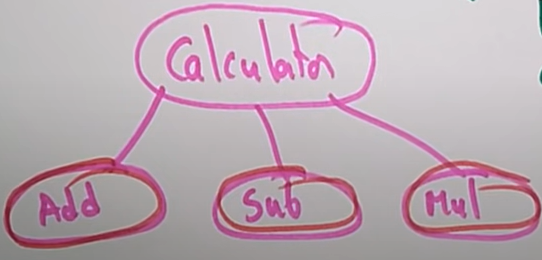 Calculator
Add
Sub
Mul